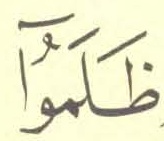 ظَلَمُوٓاْ